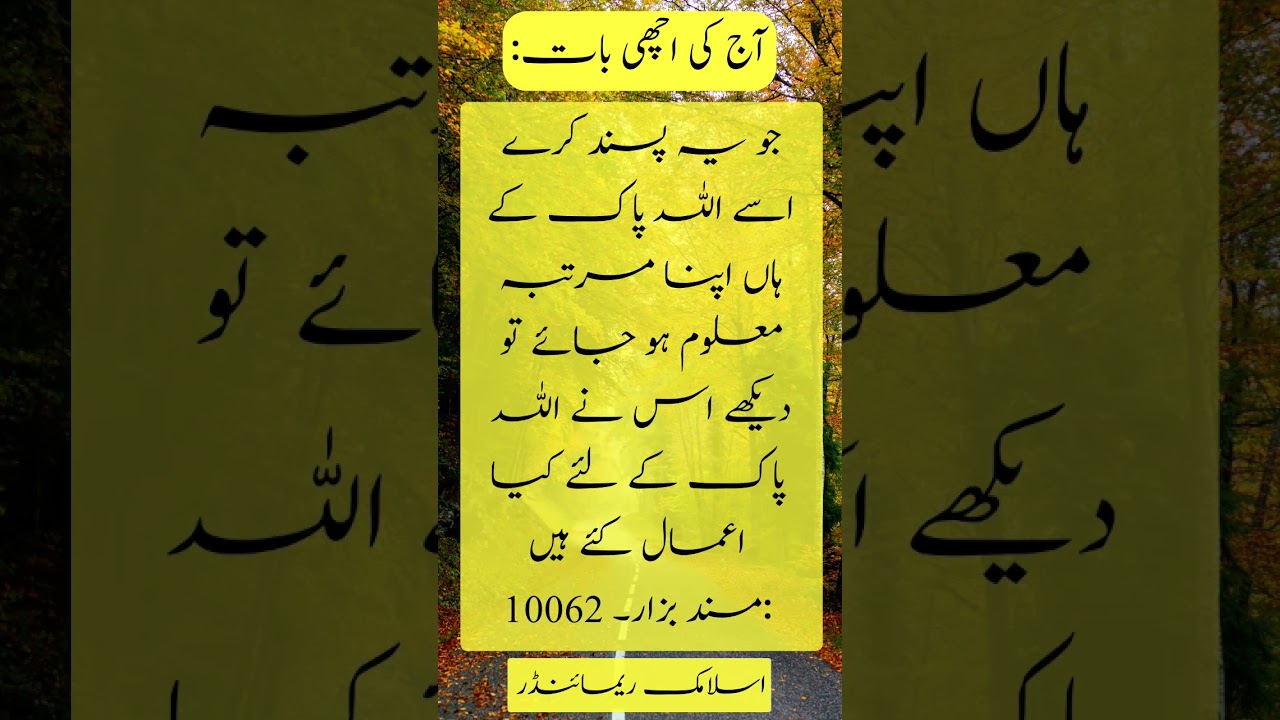 آج کی اچھی بات:
جو یہ پسند کرے
اسے اللہ پاک کے
ہاں اپنا مرتبہ
معلوم ہو جائے تو
دیکھے اس نے اللہ
پاک کے لئے کیا
اعمال کئے ہیں
:مسند بزار۔ 10062
اسلامک ریمائنڈر